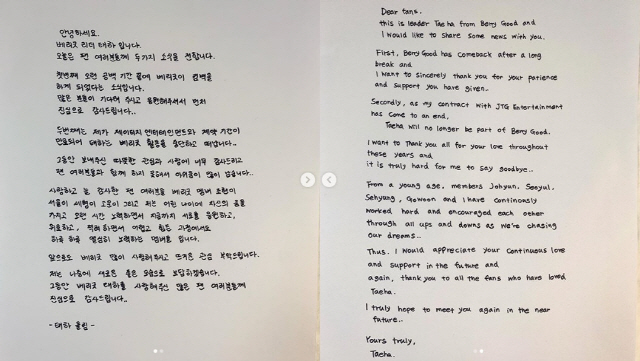 안녕하세요.
베리굿 리더 태하 입니다.
오늘은 팬 여러분들께 두가지 소식을 전합니다.
첫번째 오랜 공백 기간 끝에 베리굿이 컴백을
하게 되었다는 소식입니다.
많은 분들이 기다려 주시고 응원해주셔서 먼저
진심으로 감사드립니다..
두번째는 제가 제이티지 엔터테인먼트와 계약 기간이
만료되어 태하는 베리굿 활동을 중단하고 떠납니다..
그동안 보내주신 따뜻한 관심과 사랑에 너무 감사드리고
팬 여러분들과 함께 하지 못해서 아쉬움이 많이 큽니다..
사랑하고 늘 감사한 팬 여러분들 베리굿 멤버 조현이
서율이 세형이 고운이 그리고 저는 어린 나이에 자신의 꿈을
가지고 오랜 시간 노력하면서 지금까지 서로를 응원하고,
위로하고, 격려하면서 어렵고 힘든 과정에서도
하루 하루 열심히 노력하는 멤버들 입니다.
앞으로도 베리굿 많이 사랑해주시고 뜨거운 관심 부탁드립니다.
저는 나중에 새로운 좋은 모습으로 보답하겠습니다.
그동안 베리굿 태하를 사랑해주신 많은 팬 여러분들께
진심으로 감사드립니다..
- 태하 올림 -
Dear fans.
this is leader Taeha from Berry Good and
I would like to share some news with you.
First, Berry Good has comeback after a long
break and
I want to sincerely thank you for your patience
and support you have given..
Secondly, as my contract with JTG Entertainment
has come to an end,
Taeha will no longer be part of Berry Good.
I want to Thank you all for your love throughout
these years and
it is truly hard for me to say goodbye..
From a young age. members Johyun. Seoyul.
Sehyung, Gowoon and I have continously
worked hard and encouraged each other
through all ups and downs as we're chasing
our dreams..
Thus. I would appreciate your Continuous love
and support in the future and
again, thank you to all the fans who have loved
Taeha.
I truly hope to meet you again in the near
future..
Yours truly,
Taeha.